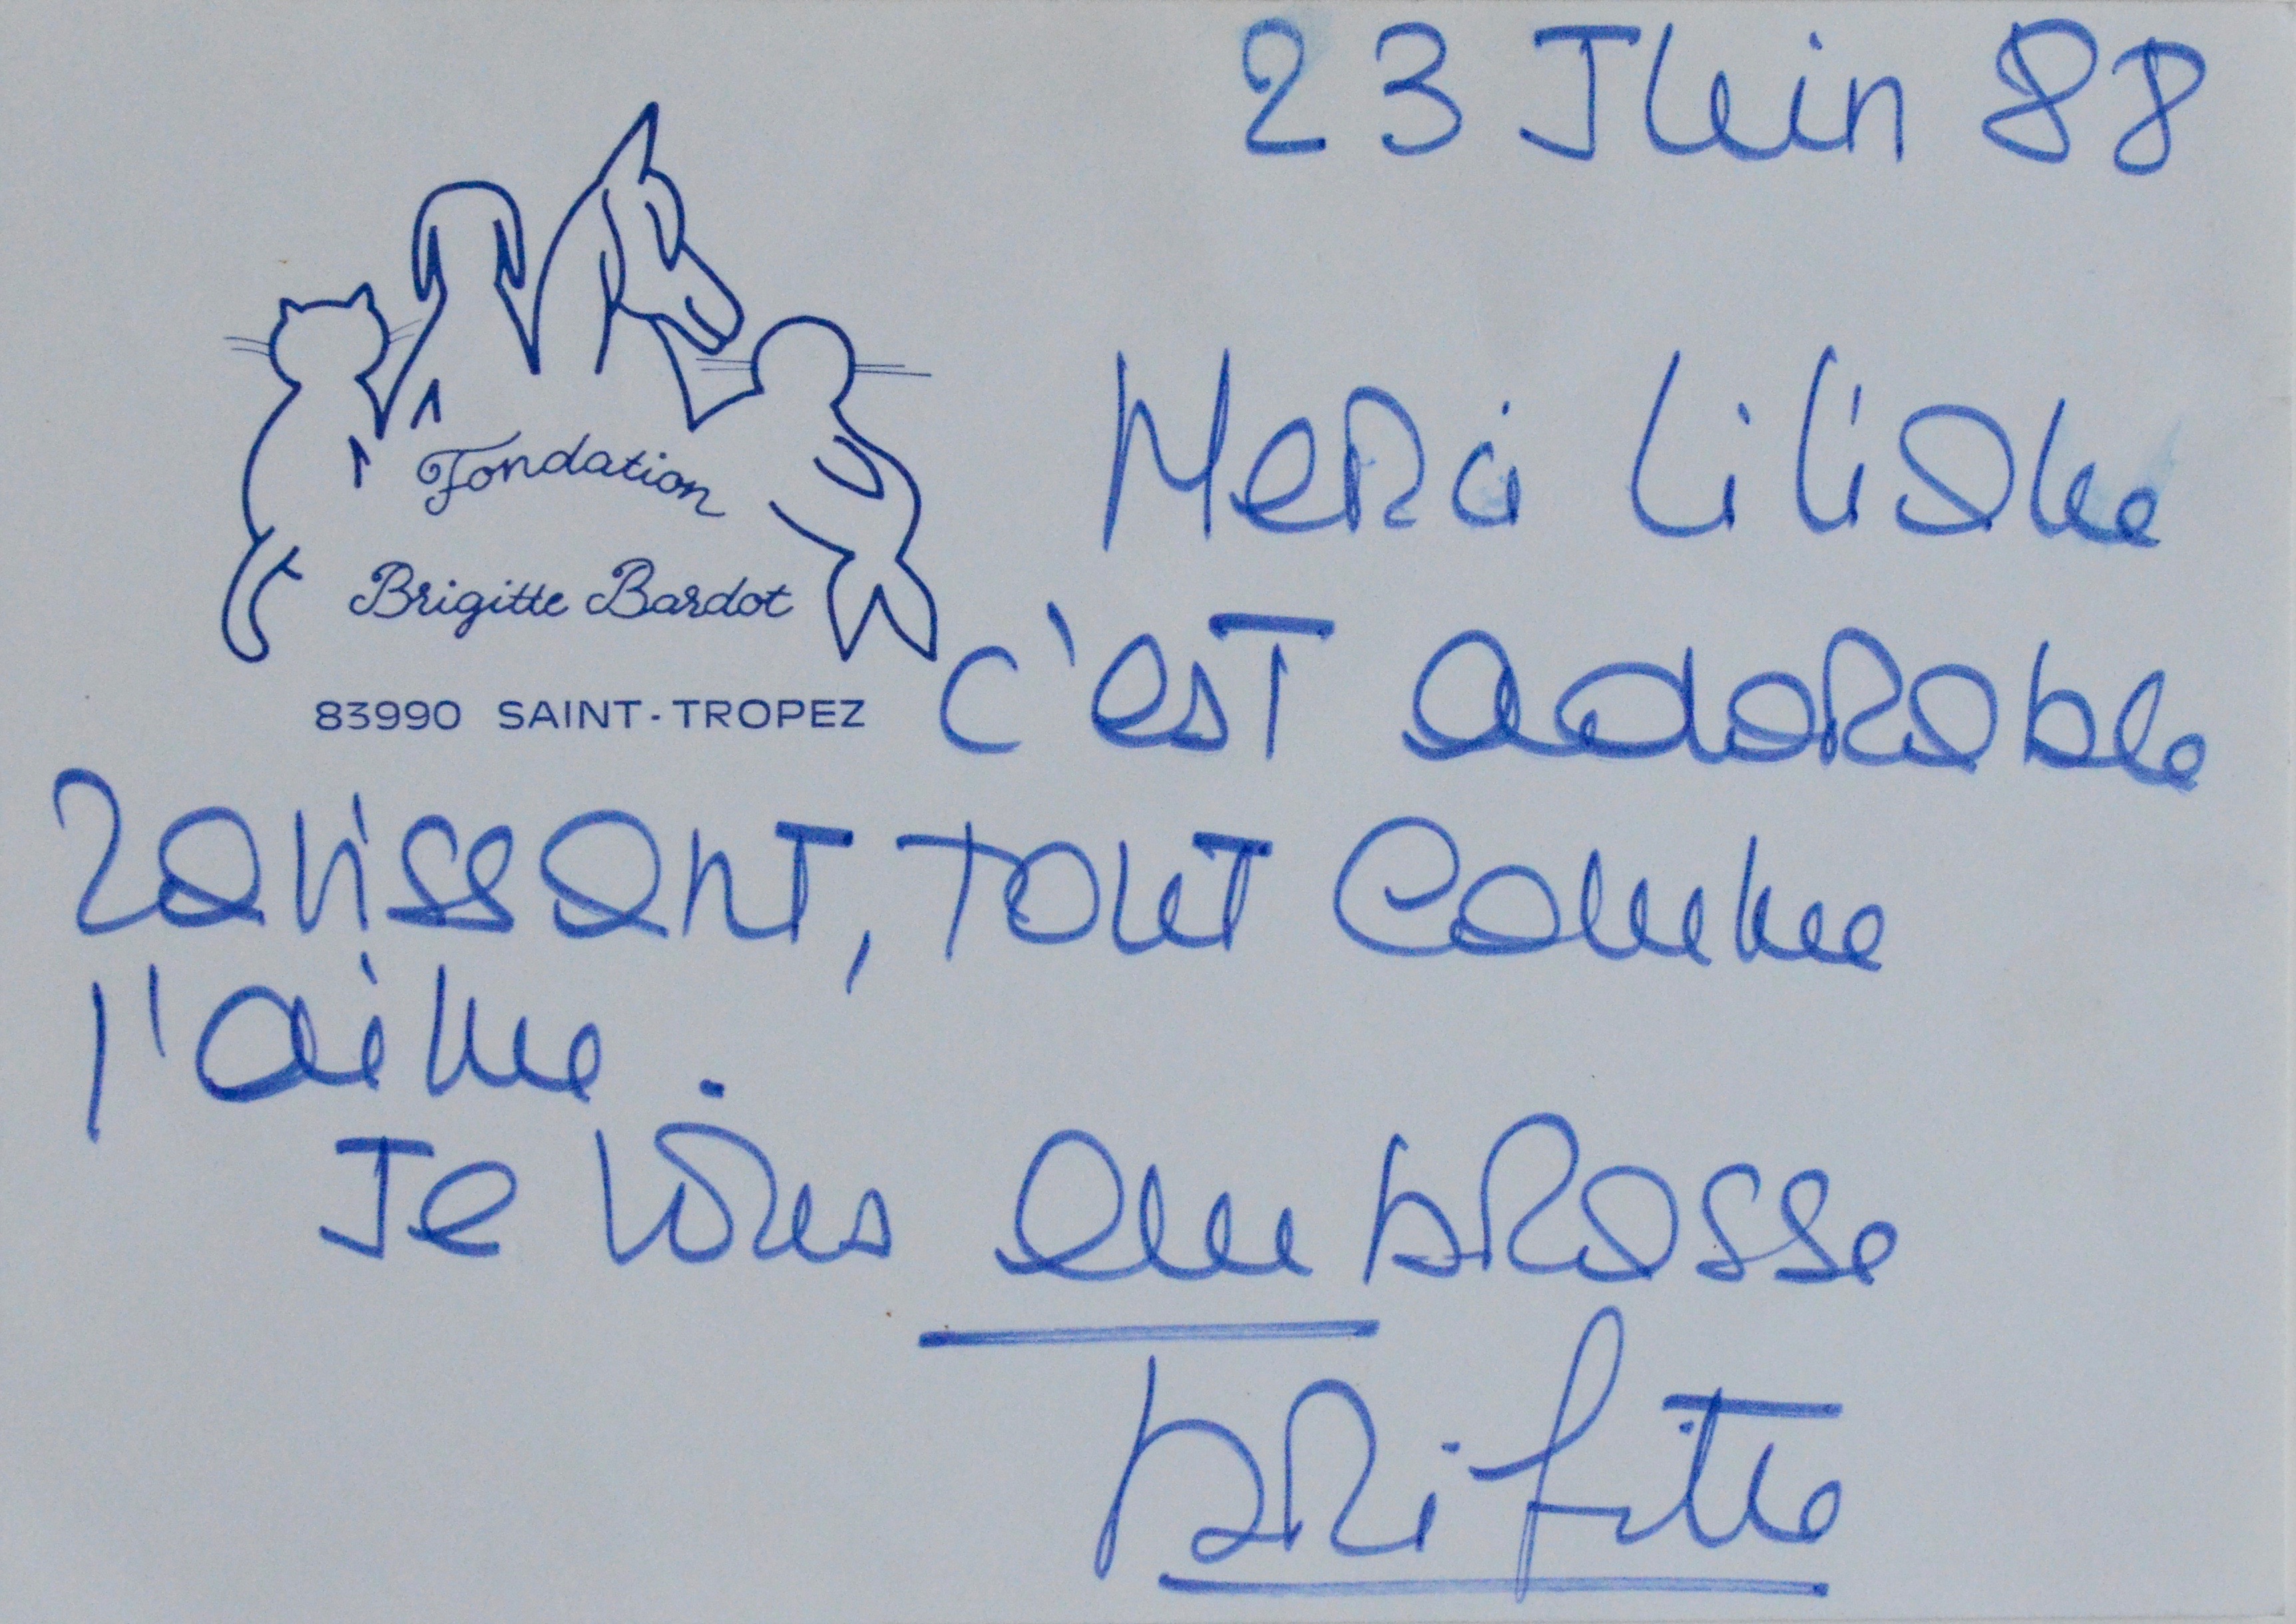 23 Juin 88
Fondation
Brigitte Bardot
83990 SAINT-TROPEZ
Merci Liliane
c'est adorable
ravissant, tout comme
j'aime.
Je vous embrasse
Brigitte